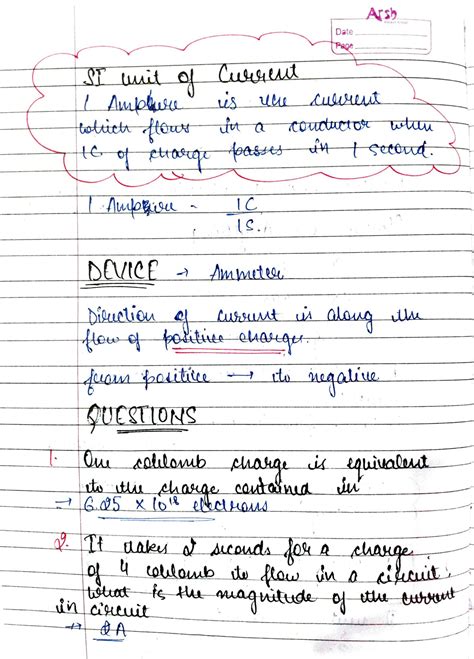 Arsh
Date
Page
SI unit of Current
1 Ampere is the current
which flows in a conductor when
1C of charge passes in 1 second.
1 Ampere = 1C
1S.
DEVICE → Ammeter
Direction of current is along the
flow of positive charge.
from positive → to negative
QUESTIONS
1. One coulomb charge is equivalent
to the charge contained in
→ 6.25 × 10¹⁸ electrons
2. It takes 2 seconds for a charge
of 4 coulomb to flow in a circuit.
what is the magnitude of the current
in circuit
→ 2A